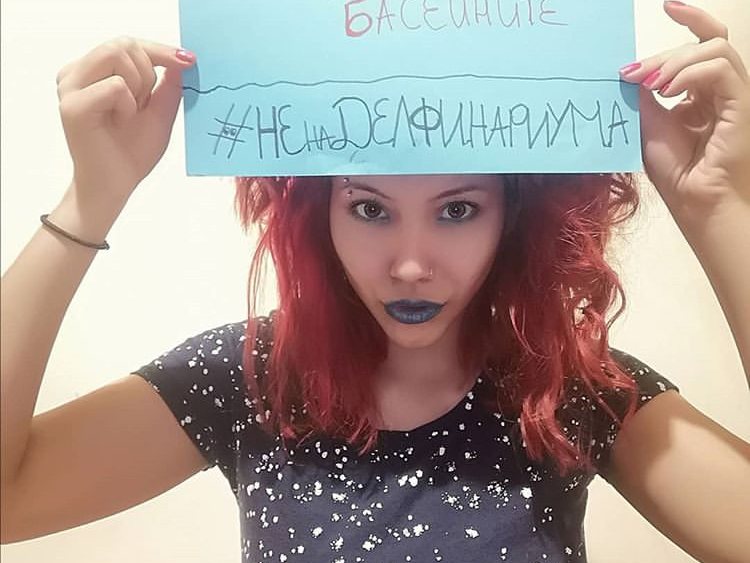 БАСЕЙНИТЕ
#НЕнаДЕЛФИНАРИУМА